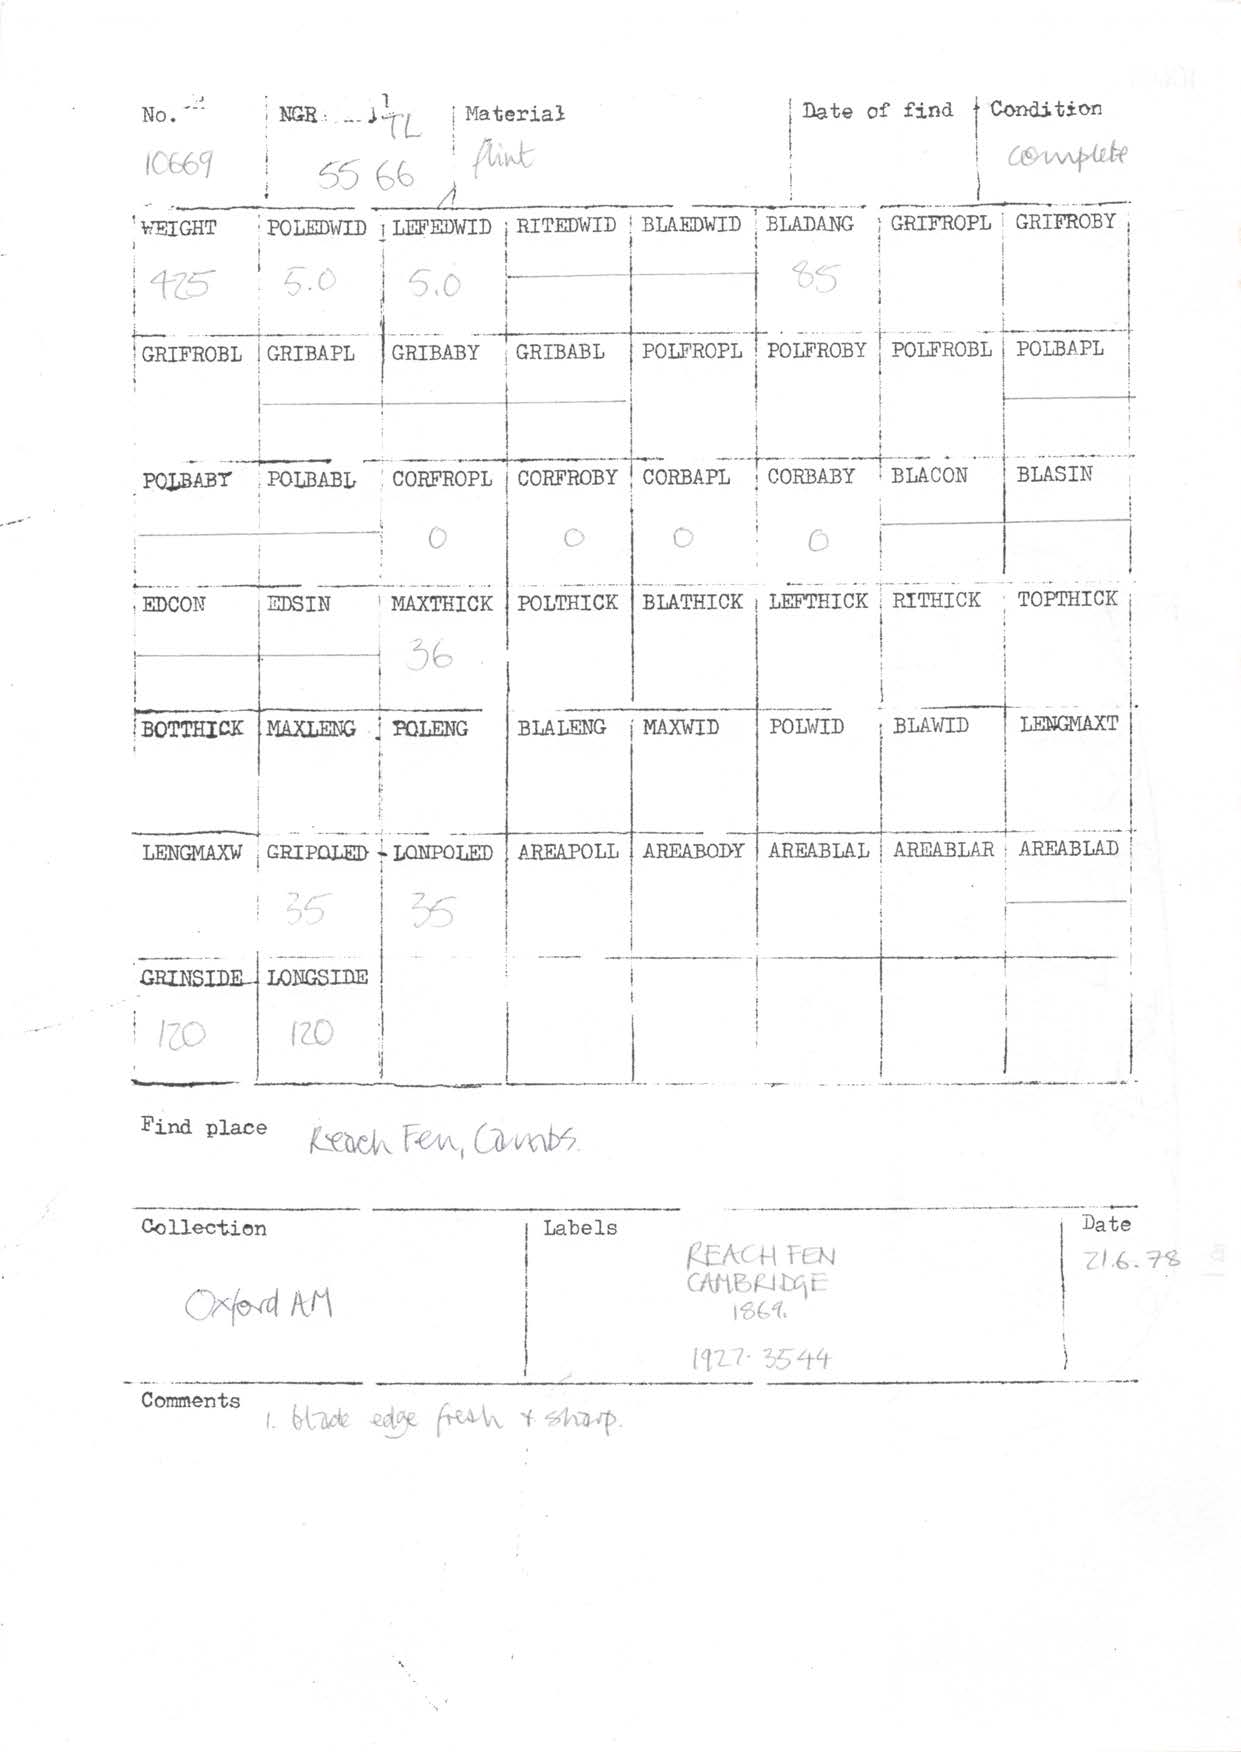 No. NGR TL Material Date of find Condition
10669 55 66 flint complete
WEIGHT POLEDWID LEFEDWID RITEDWID BLAEDWID BLADANG GRIFROPL GRIFROBY
425 5.0 5.0 85
GRIFROBL GRIBAPL GRIBABY GRIBABL POLFROPL POLFROBY POLFROBL POLBAPL
POLBABY POLBABL CORFROPL CORFROBY CORBAPL CORBABY BLACON BLASIN
0 0 0 0
EDCON EDSIN MAXTHICK POLTHICK BLATHICK LEFTHICK RITHICK TOPTHICK
36
BOTTHICK MAXLENG POLENG BLALENG MAXWID POLWID BLAWID LENGMAXT
LENGMAXW GRIPOLED LONPOLED AREAPOLL AREABODY AREABLAL AREABLAR AREABLAD
35 35
GRINSIDE LONGSIDE
120 120
Find place Reach Fen, Cambs.
Collection Labels Date
REACH FEN 21.6.78
CAMBRIDGE
Oxford AM 1869.
1927.3544
Comments 1. blade edge fresh + sharp.